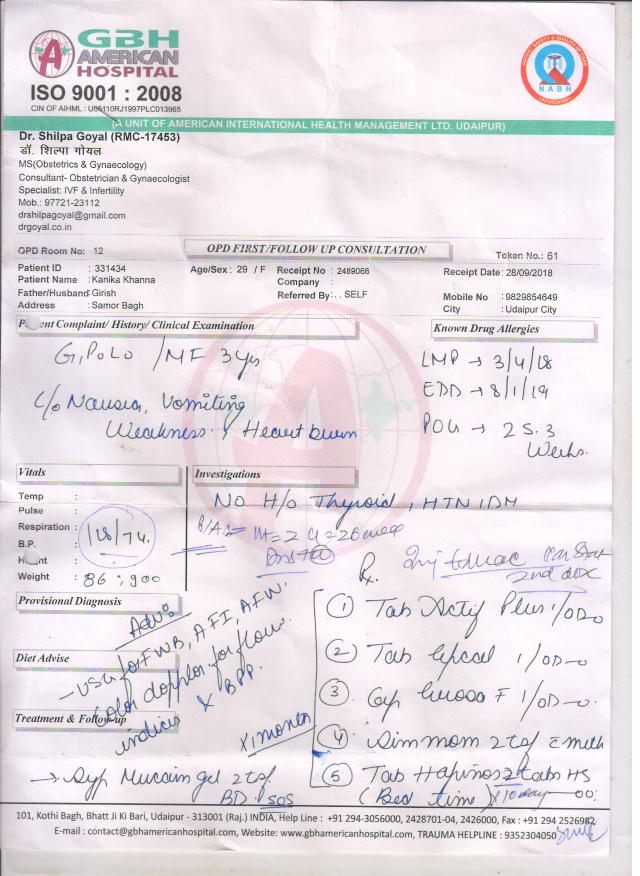 GBH
AMERICAN
HOSPITAL
ISO 9001 : 2008
CIN OF AIHML : U85110RJ1997PLC013965
NABH
(A UNIT OF AMERICAN INTERNATIONAL HEALTH MANAGEMENT LTD. UDAIPUR)
Dr. Shilpa Goyal (RMC-17453)
डॉ. शिल्पा गोयल
MS(Obstetrics & Gynaecology)
Consultant- Obstetrician & Gynaecologist
Specialist: IVF & Infertility
Mob.: 97721-23112
drshilpagoyal@gmail.com
drgoyal.co.in
OPD Room No: 12
OPD FIRST/FOLLOW UP CONSULTATION
Token No.: 61
Patient ID : 331434 Age/Sex : 29 / F Receipt No : 2489066 Receipt Date: 28/09/2018
Patient Name : Kanika Khanna Company :
Father/Husband: Girish Referred By: . . SELF Mobile No : 9829854649
Address : Samor Bagh City : Udaipur City
Complaint/ History/ Clinical Examination
Known Drug Allergies
G1P0L0 / MF 3 yrs
LMP → 3/4/18
EDD → 8/1/19
C/o Nausea, Vomiting
Weakness & Heart burn
POG → 25.3
Weeks.
Vitals
Investigations
No H/o Thyroid, HTN, DM
Temp :
Pulse :
Respiration :
B.P. : 118/74.
Weight : 86.900
P/A
Rx.
2nd
Provisional Diagnosis
Adv:
- USG for FWB, AFI, AFW.
Color doppler for flow
indices & BPP.
Diet Advise
Treatment & Follow up
x 1 month
① Tab Actif Plus 1/OD
② Tab 1/OD
③ Cap F 1/OD
④ 2 tsf
⑤ Tab 2 tabs HS
(Bed time) x 10 day
→ Syp Mucain gel 2 tsf
BD. SOS
101, Kothi Bagh, Bhatt Ji Ki Bari, Udaipur - 313001 (Raj.) INDIA, Help Line : +91 294-3056000, 2428701-04, 2426000, Fax : +91 294 2526982
E-mail : contact@gbhamericanhospital.com, Website: www.gbhamericanhospital.com, TRAUMA HELPLINE : 9352304050